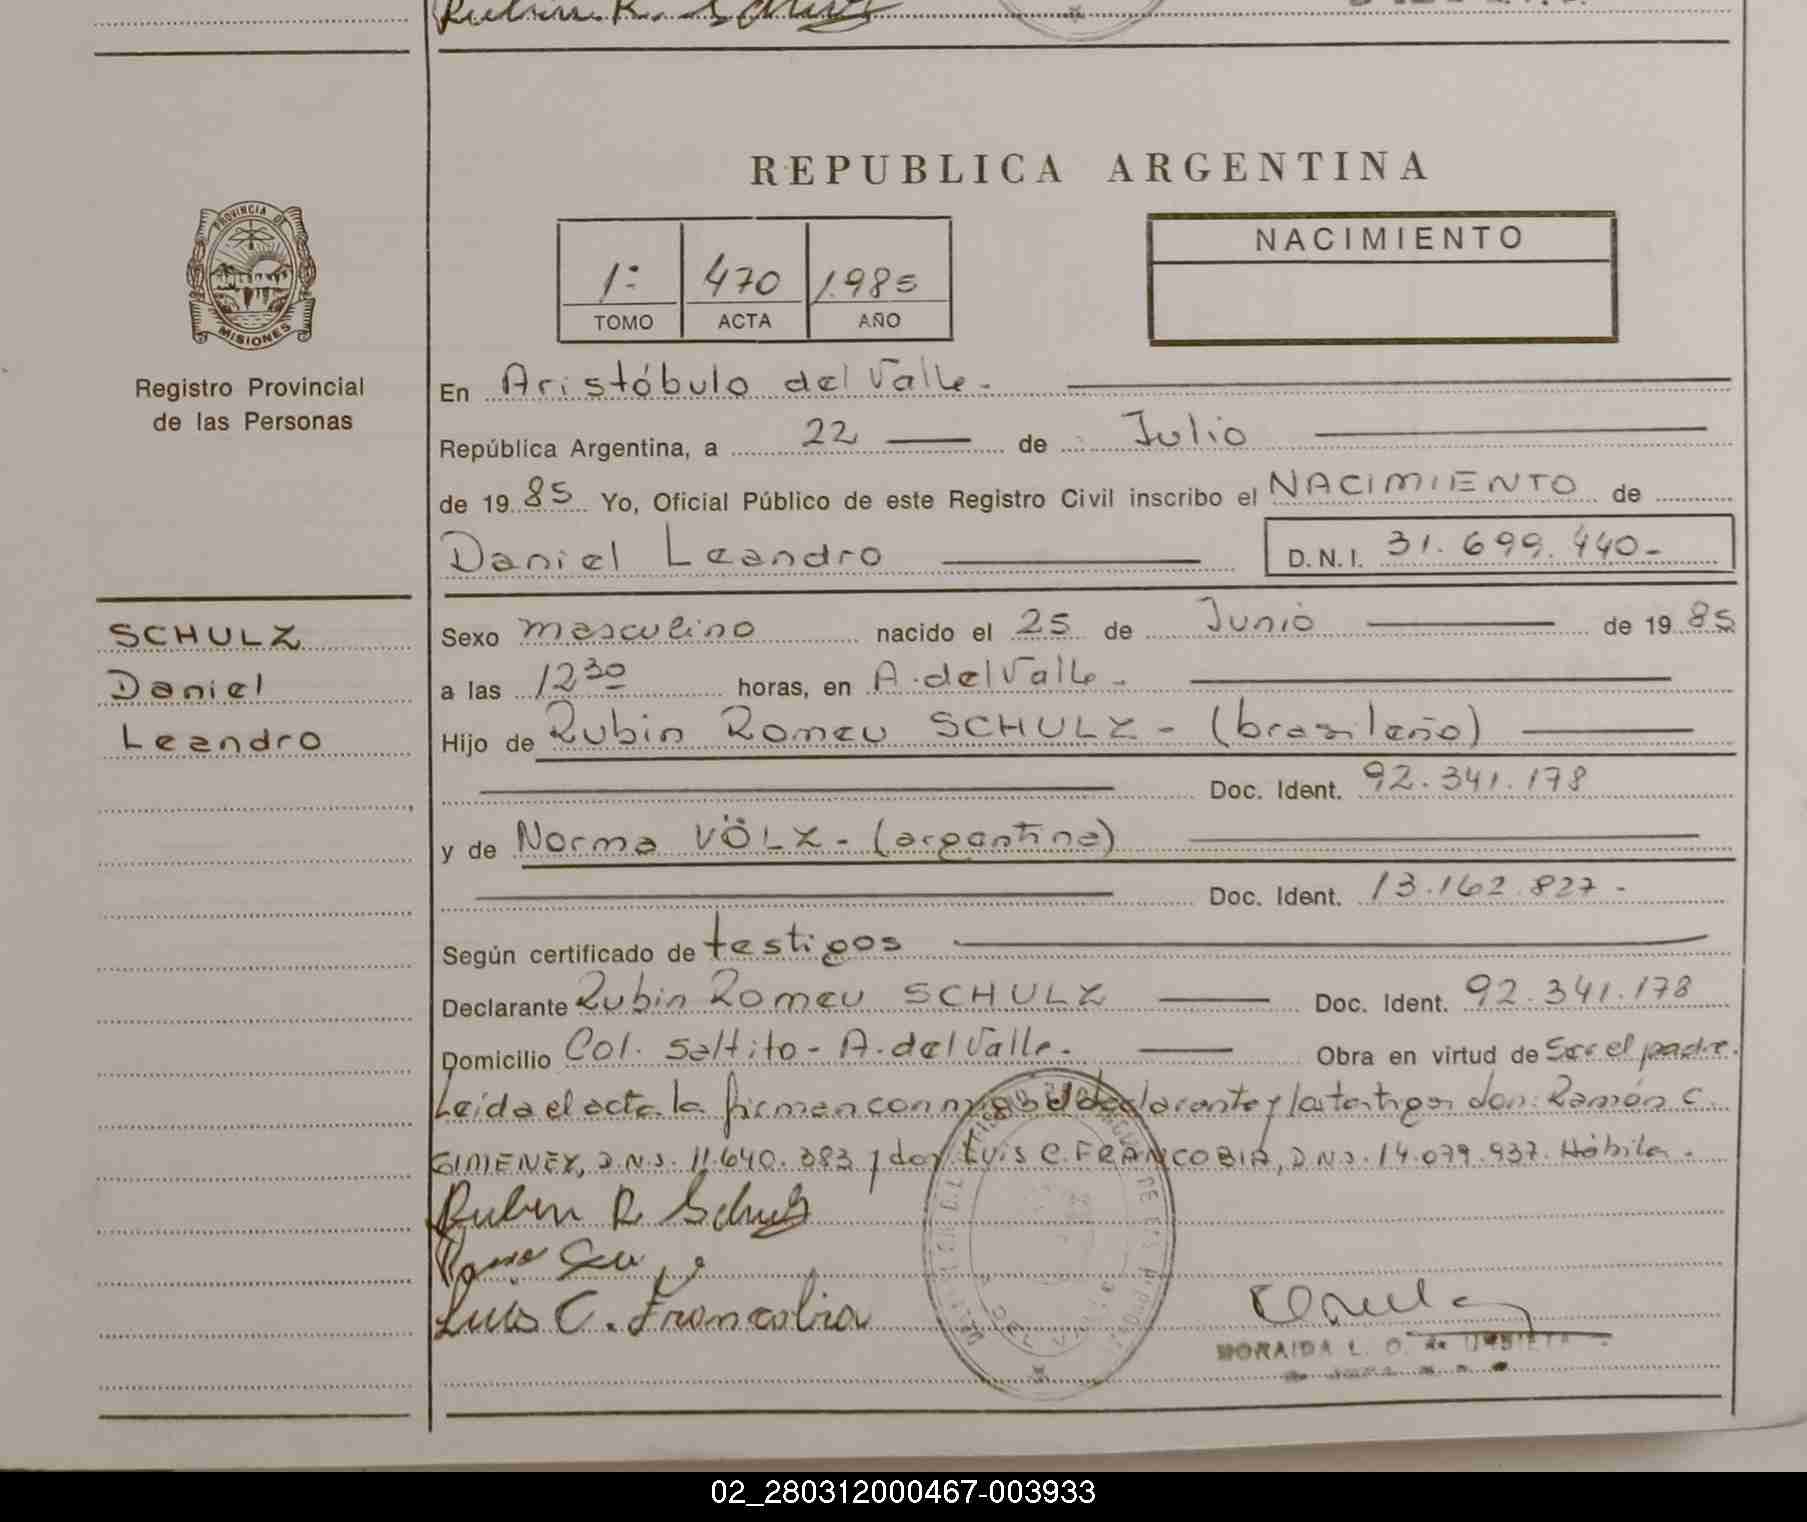 Ruben R. Schulz
REPUBLICA ARGENTINA
PROVINCIA DE
MISIONES
Registro Provincial
de las Personas
1º 470 1.985
TOMO ACTA AÑO
NACIMIENTO
En Aristóbulo del Valle.-
República Argentina, a 22 de Julio
de 19 85 Yo, Oficial Público de este Registro Civil inscribo el NACIMIENTO de
Daniel Leandro D.N.I. 31.699.440-
SCHULZ
Daniel
Leandro
Sexo masculino nacido el 25 de Junio de 19 85
a las 12 30 horas, en A. del Valle-
Hijo de Rubin Romeu SCHULZ - (brasileño)
Doc. Ident. 92.341.178
y de Norma VÖLZ - (argentina)
Doc. Ident. 13.162.827-
Según certificado de testigos
Declarante Rubin Romeu SCHULZ Doc. Ident. 92.341.178
Domicilio Col. Saltito - A. del Valle. Obra en virtud de Ser el padre.
Leída el acta la firman conmigo el declarante y los testigos don: Ramón C.
GIMENEZ, D.N.I. 11.640.383 y don Luis C. FRANCOBIA, D.N.I. 14.079.937. Hábiles.
Ruben R. Schulz
Luis C. Francobia
DEL VALLE
MORAIDA L. O. de
02_280312000467-003933